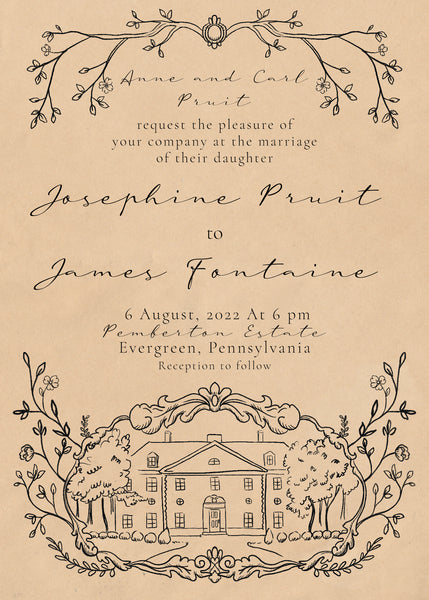 Anne and Carl
Pruit
request the pleasure of
your company at the marriage
of their daughter
Josephine Pruit
to
James Fontaine
6 August, 2022 At 6 pm
Pemberton Estate
Evergreen, Pennsylvania
Reception to follow